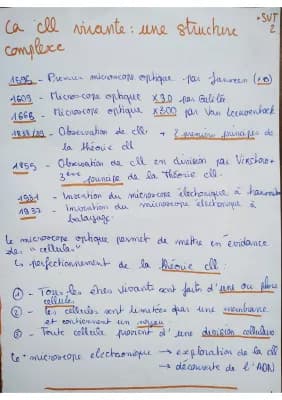 La cll vivante : une structure
• SVT
2
complexe
1595 - Premier microscope optique par Janssen
1609 - Microscope optique X30 par Galilée
1668 - Microscope optique X300 par Van Leeuwenhoek
1838/39 - Observation de cll + 2 premiers principes de
la théorie cll
1855 - Observation de cll en division par Virchow +
3ème principe de la théorie cll.
1931 - Invention du microscope électronique à transmission
1937 - Invention du microscope électronique à
balayage.
Le microscope optique permet de mettre en évidence
des "cellula"
↳ perfectionnement de la théorie cll :
① - Tous les êtres vivants sont faits d'une ou plsrs
cellules.
② - Les cellules sont limitées par une membrane
et contiennent un noyau
③ - Toute cellule provient d'une division cellulaire
Le microscope electronique → exploration de la cll
→ découverte de l'ADN